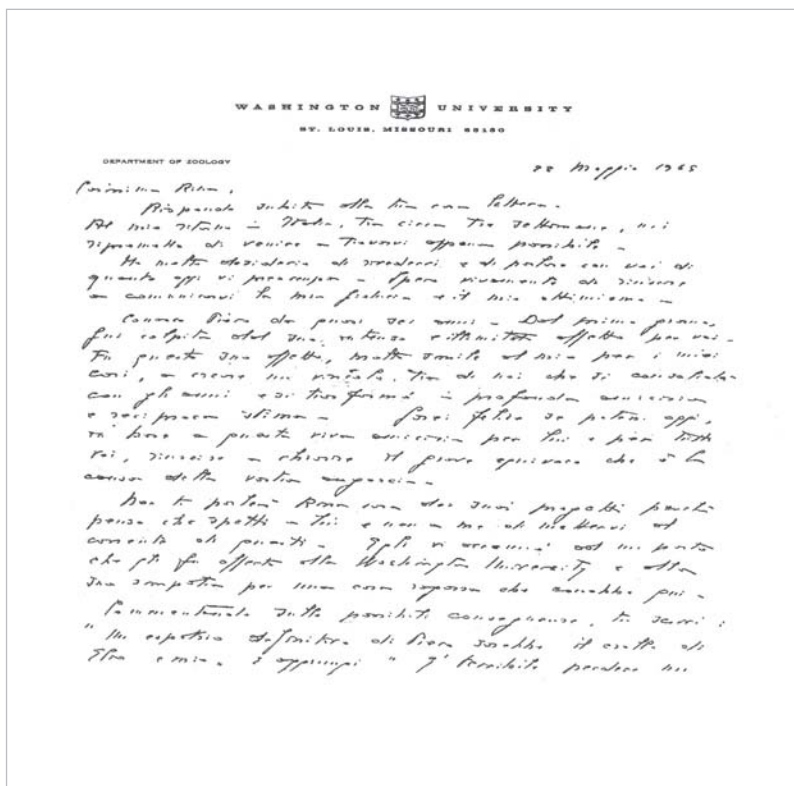 WASHINGTON UNIVERSITY
ST. LOUIS, MISSOURI 63130
DEPARTMENT OF ZOOLOGY
22 Maggio 1965
Carissima Rina,
Rispondo subito alla tua cara lettera.
Al mio ritorno in Italia, tra circa tre settimane, mi
riprometto di venire a trovarvi appena possibile.
Ho molto desiderio di rivederci e di parlare con voi di
quanto oggi vi preoccupa. Spero vivamente di riuscire
a comunicarvi la mia fiducia e il mio ottimismo.
Conosco Piero da quasi sei anni. Dal primo giorno,
fui colpita dal suo intenso e illimitato affetto per voi.
Fu questo suo affetto, molto simile al mio per i miei
cari, a creare un vincolo, tra di noi che si consolidò
con gli anni e si trasformò in profonda amicizia
e reciproca stima. Sarei felice se potessi oggi,
in base a questa viva amicizia per lui e per tutti
voi, riuscire a chiarire il grave equivoco che è la
causa della vostra angoscia.
Non ti parlerò Rina cara dei suoi progetti perché
penso che spetti a lui e non a me di mettervi al
corrente di questi. Egli vi accennò ad un posto
che gli fu offerto alla Washington University e alla
sua simpatia per una cara ragazza che conobbe qui.
Commentando sulle possibili conseguenze, tu scrivi:
"Un espatrio definitivo di Piero sarebbe il crollo di
e mio" e aggiungi "E' terribile perdere un